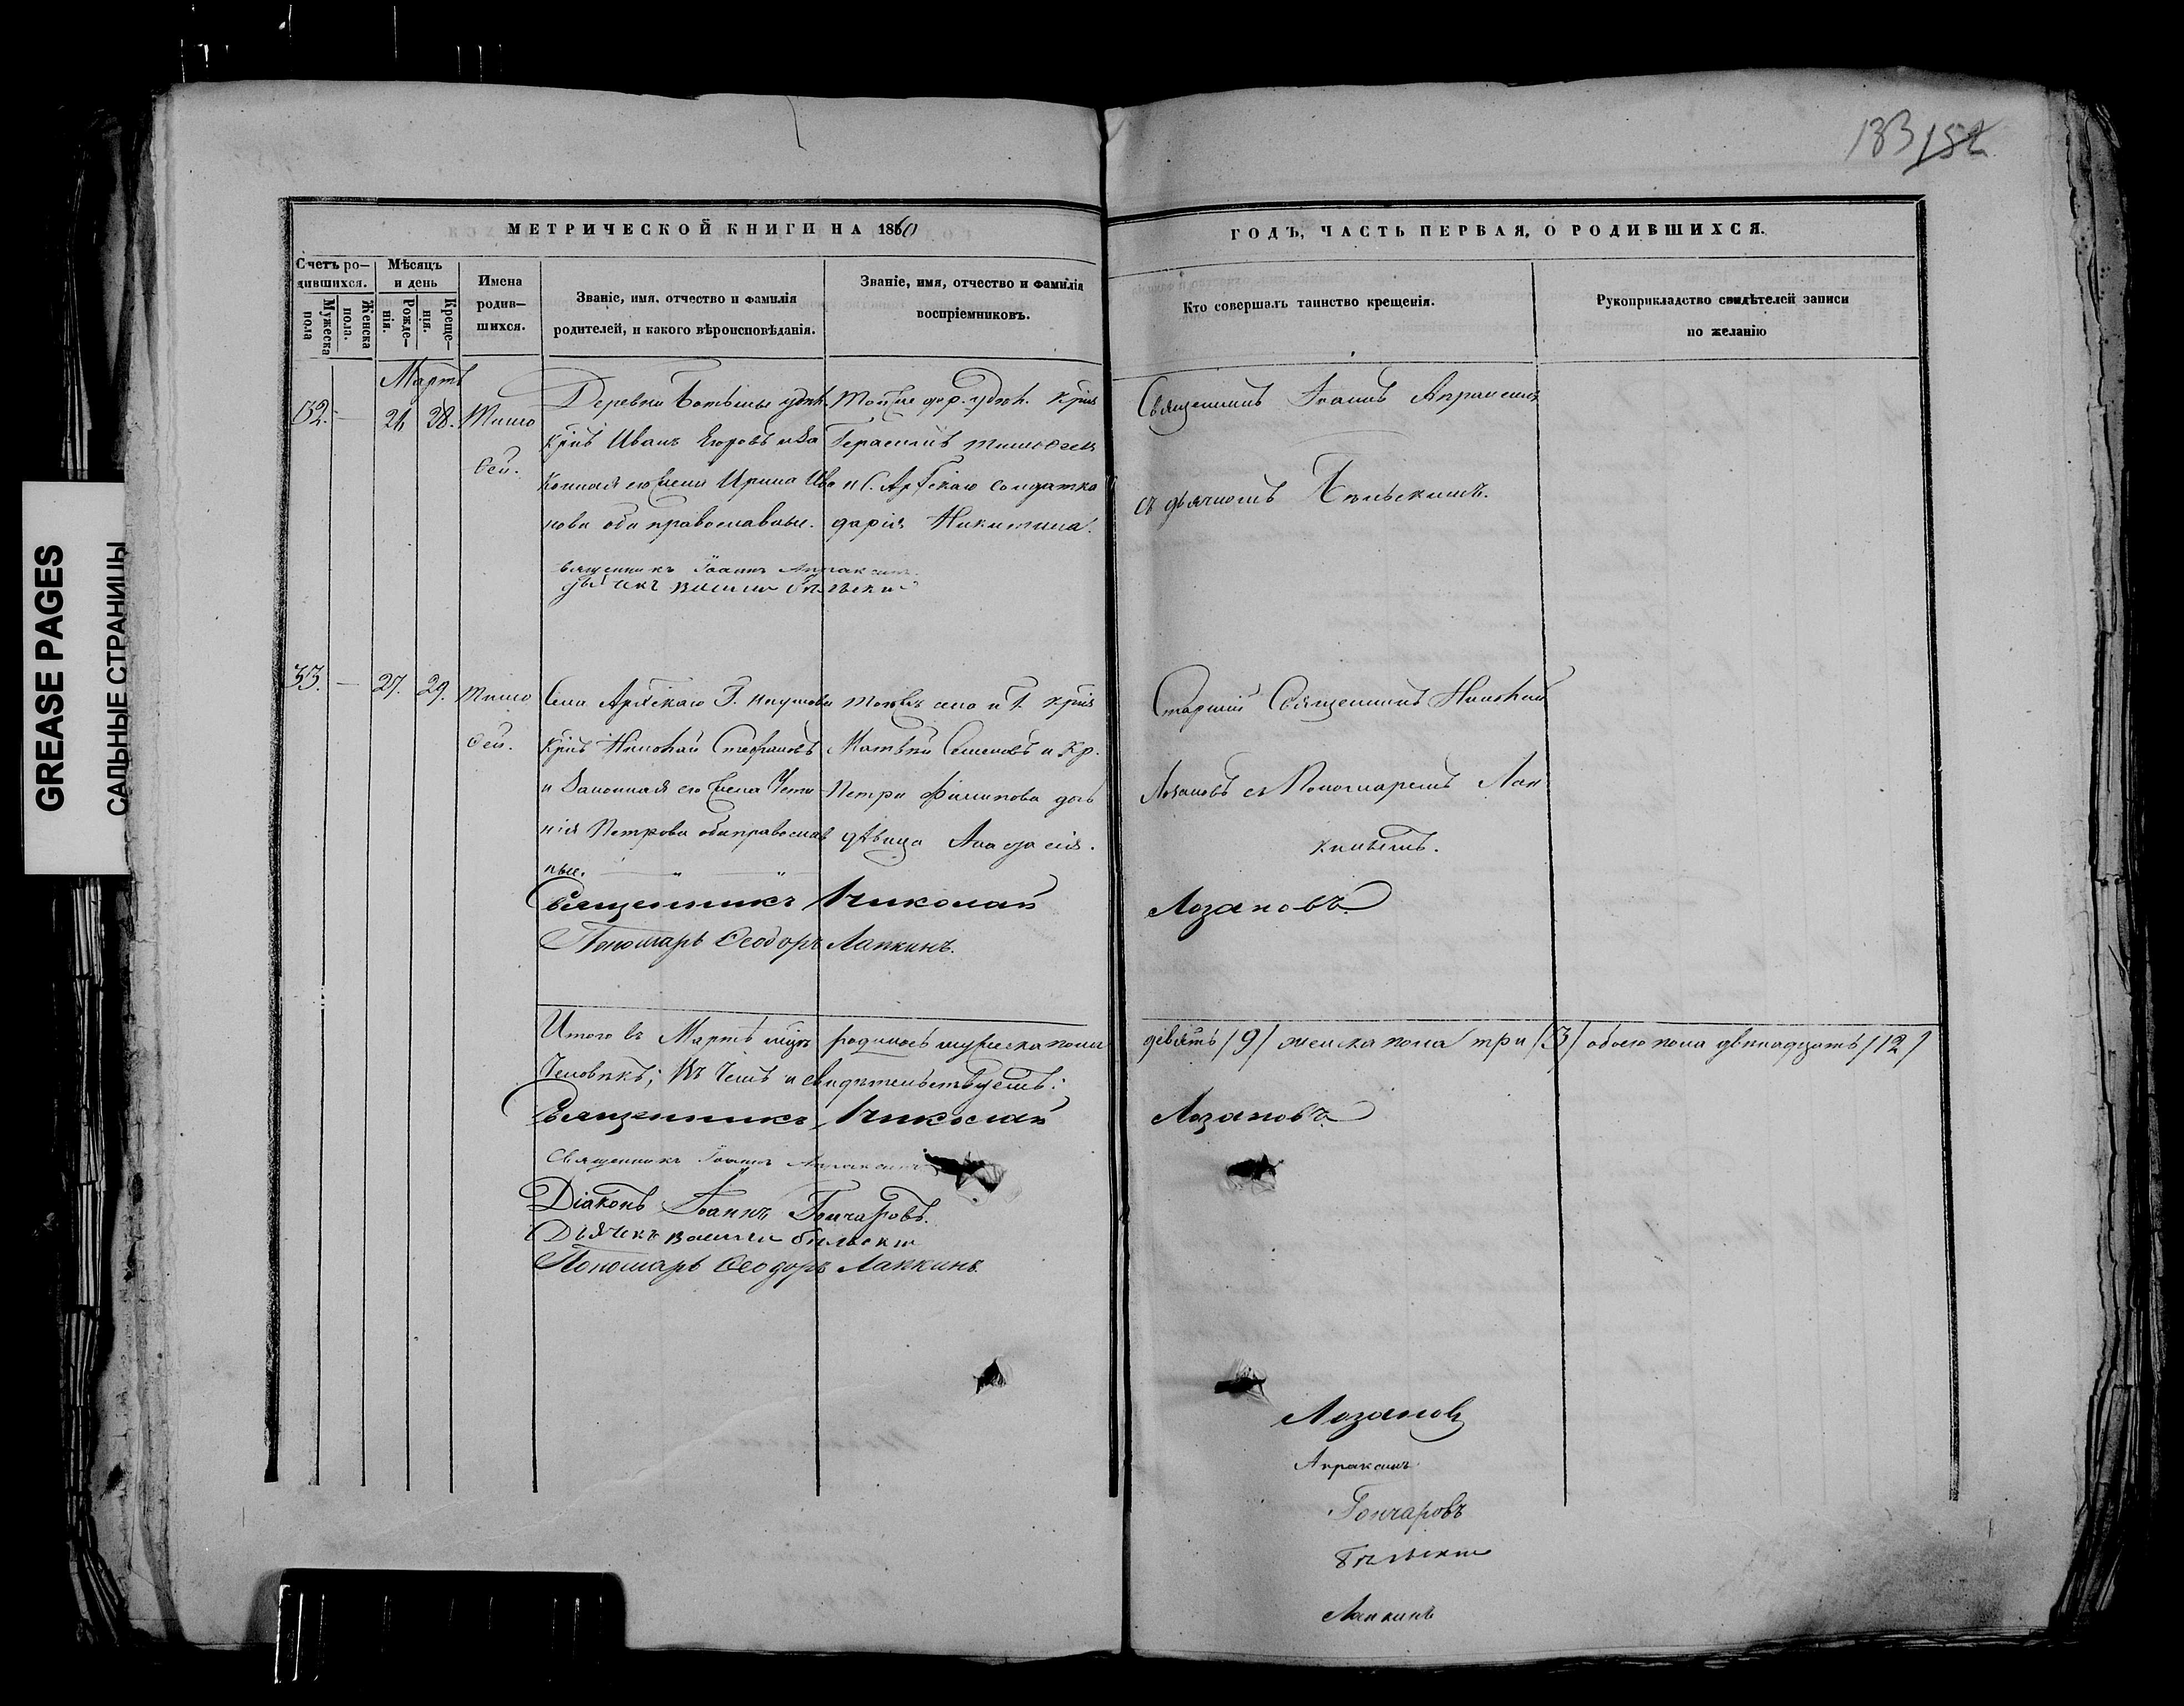 133 152
МЕТРИЧЕСКОЙ КНИГИ НА 1860
ГОДЪ, ЧАСТЬ ПЕРВАЯ, О РОДИВШИХСЯ.
Счетъ ро-
дившихся.
Мужеска
пола
Женска
пола.
Мѣсяцъ
и день
Рожде-
нія.
Креще-
нія.
Имена
родив-
шихся.
Званіе, имя, отчество и фамилія
родителей, и какого вѣроисповѣданія.
Званіе, имя, отчество и фамилія
воспріемниковъ.
Кто совершалъ таинство крещенія.
Рукоприкладство свидѣтелей записи
по желанію
Мартъ
32. — 28. Тимо
ѳей.
Деревни удѣл.
Крнъ Иванъ Егоровъ и За
конная его жена Ирина Ива
нова оба православные.
Тойже дер. удѣл. Крнъ
Герасимъ Тимоѳеев
и С. солдатка
Дарія Никитина.
Священникъ Іоаннъ Апраксинъ
съ дьячкомъ Бѣльскимъ.
Священникъ Іоаннъ Апраксинъ
Дьячекъ Василій Бѣльскій
33. — 27. 29. Тимо
ѳей.
Села Г. Наумова
Крнъ Николай Стефановъ
и Законная его жена Усти
нія Петрова оба православ
ные.
тогоже села и Г. Крнъ
Матвѣй Семеновъ и Кр.
Петра Филипова дочь
дѣвица
Старшій Священникъ Николай
Лозановъ съ Пономаремъ Лап
кинымъ.
Священникъ Николай Лозановъ
Пономарь Ѳеодоръ Лапкинъ.
Итого въ Мартѣ мцѣ родилось мужеска пола девять /9/ женска пола три /3/ обоего пола двѣнадцать /12/
Человѣкъ; Въ чемъ и свидѣтельствуемъ:
Священникъ Николай Лозановъ
Священникъ Іоаннъ Апраксинъ
Діаконъ Іоаннъ Гончаровъ.
Дьячекъ Василій Бѣльскій
Пономарь Ѳеодоръ Лапкинъ
Лозановъ
Апраксинъ
Гончаровъ
Бѣльскій
Лапкинъ
GREASE PAGES
САЛЬНЫЕ СТРАНИЦЫ